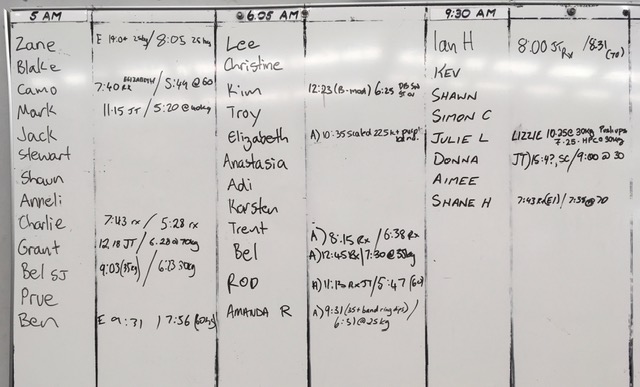 5 AM
Zane E 19:04 25kg / 8:05 25kg
Blake
Camo 7:40 RX ELIZABETH / 5:49 @ 60
Mark 11:15 JT / 5:20 @ 40kg
Jack
Stewart
Shawn
Anneli
Charlie 7:43 rx / 5:28 rx
Grant 12:18 JT / 6:28 @ 70kg
Bel SJ 9:03 (35kg) / 6:23 30kg
Prue
Ben E 9:31 / 7:56 (60kg)
6.05 AM
Lee
Christine
Kim 12:23 (B-mod) 6:25 DB
Troy
Elizabeth A) 10:35 scaled 22.5kg
Anastasia
Adi
Karsten
Trent A) 8:15 Rx / 6:38 Rx
Bel A) 12:45 Rx / 7:30 @ 35kg
ROD A) 11:13 RX JT / 5:47
AMANDA R A) 9:31 (25 + band ring dips) /
6:51 @ 25kg
9:30 AM
Ian H 8:00 JT Rx / 8:31 (70)
KEV
SHAWN
SIMON C
JULIE L LIZZIE 10:25 @ 30kg Push ups
7:25 HPC @ 30kg
DONNA JT) 15:4?, SC / 9:00 @ 30
AIMEE
SHANE H 7:43 RX (E1) / 7:38 @ 70